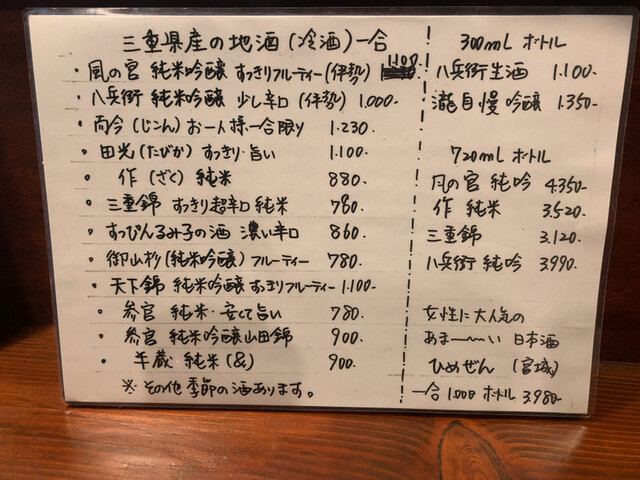 三重県産の地酒(冷酒)一合
・風の宮 純米吟醸 すっきりフルーティー(伊勢) 1.100
・八兵衛 純米吟醸 少し辛口(伊勢) 1.000-
・而今(じこん)お一人様一合限り 1.230-
・田光(たびか)すっきり・旨い 1.100-
・作(ざく)純米 880-
・三重錦 すっきり超辛口 純米 780-
・すっぴんるみ子の酒 濃い辛口 860-
・御山杉(純米吟醸)フルーティー 780-
・天下錦 純米吟醸 すっきりフルーティー 1.100-
・参宮 純米・安くて旨い 780-
・参宮 純米吟醸山田錦 900-
・半蔵 純米(&) 900-
※その他季節の酒あります。
300mL ボトル
八兵衛生酒 1.100-
瀧自慢 吟醸 1.350-
720mL ボトル
風の宮 純吟 4.350-
作 純米 3.520-
三重錦 3.120-
八兵衛 純吟 3.990-
女性に大人気の
あま〜〜い 日本酒
ひめぜん(宮城)
一合 1.000 ボトル 3.980-